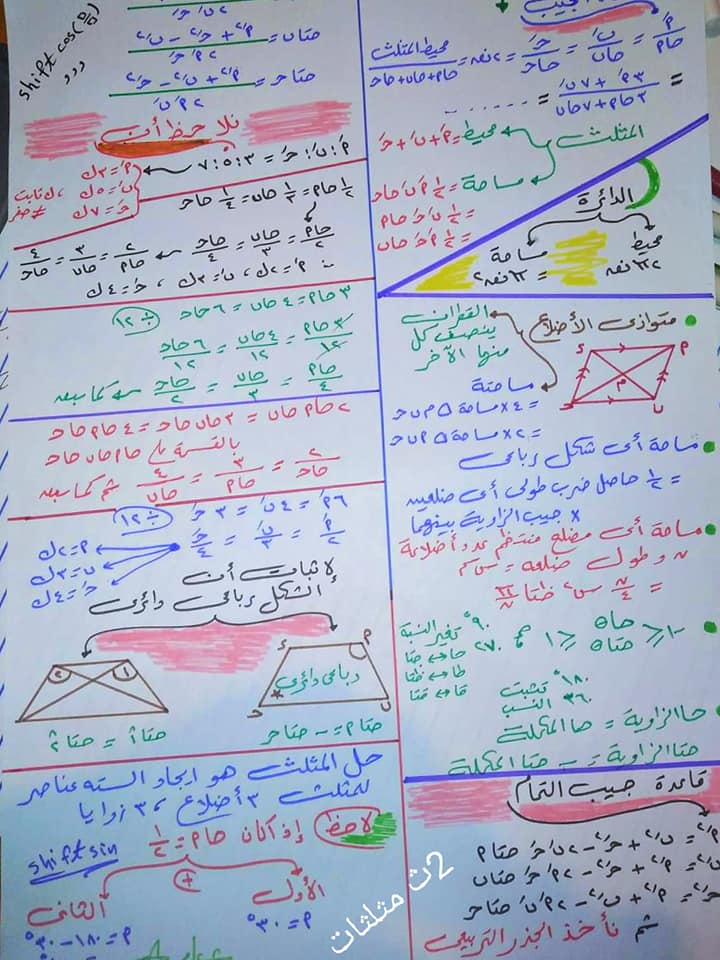 الجيب
أَ/حا أ = بَ/حا ب = حَ/حا ح = ٢ نق = محيط المثلث/حا أ + حا ب + حا ح
= ٣أَ + ٧بَ/٣حا أ + ٧حا ب = .......
المثلث
محيط = أَ + بَ + حَ
مساحة = ١/٢ أَ بَ حا ح
= ١/٢ بَ حَ حا أ
= ١/٢ أَ حَ حا ب
الدائرة
محيط
٢ط نق
مساحة
= ط نق٢
متوازى الأضلاع
القطران
ينصف كل
منها الآخر
مساحته
= ٤ × مساحة △ م ب ح
= ٢ × مساحة △ أ ب ح
مساحة أى شكل رباعى
= ١/٢ حاصل ضرب طولى أى ضلعين
× جيب الزاوية بينهما
مساحة أى مضلع منتظم عدد أضلاعه
ن وطول ضلعه = س سم
= ن/٤ س٢ ظتا ط/ن
-١ ≤ حا ه ≤ ١
حتا ه
٩٠°، ٢٧٠ تغير النسبة
حا ↔ حتا
طا ↔ ظتا
قا ↔ قتا
١٨٠°
٣٦٠
تثبت
النسب
حا الزاوية = حا المكملة
حتا الزاوية = - حتا المكملة
قاعدة جيب التمام
أَ٢ = بَ٢ + حَ٢ - ٢بَ حَ حتا أ
بَ٢ = أَ٢ + حَ٢ - ٢أَ حَ حتا ب
حَ٢ = أَ٢ + بَ٢ - ٢أَ بَ حتا ح
ثم نأخذ الجذر التربيعى
shift cos
٢بَ حَ
حتا ب = أَ٢ + حَ٢ - بَ٢/٢أَ حَ
حتا ح = أَ٢ + بَ٢ - حَ٢/٢أَ بَ
نلاحظ أن
أَ : بَ : حَ = ٣ : ٥ : ٧
أَ = ٣ك
بَ = ٥ك
حَ = ٧ك
، ك ثابت
≠ صفر
١/٢ حا أ = ١/٣ حا ب = ١/٤ حا ح
حا أ/٢ = حا ب/٣ = حا ح/٤ ← ٢/حا أ = ٣/حا ب = ٤/حا ح
∴ أَ = ٢ك ، بَ = ٣ك ، حَ = ٤ك
٣ حا أ = ٤ حا ب = ٦ حا ح ÷ ١٢
٣حا أ/١٢ = ٤حا ب/١٢ = ٦حا ح/١٢
حا أ/٤ = حا ب/٣ = حا ح/٢ ← كما سبق
٢ حا أ حا ب = ٣ حا ب حا ح = ٤ حا أ حا ح
بالقسمة على حا أ حا ب حا ح
٢/حا ح = ٣/حا أ = ٤/حا ب ثم كما سبق
٦أَ = ٤بَ = ٣حَ ÷ ١٢
أَ/٢ = بَ/٣ = حَ/٤
أَ = ٢ك
بَ = ٣ك
حَ = ٤ك
لاثبات أن
الشكل رباعى دائرى
رباعى دائرى
حتا أ = - حتا ح
١
٢
حتا ١ = حتا ٢
حل المثلث هو ايجاد السته عناصر
للمثلث ٣ أضلاع ، ٣ زوايا
لاحظ إذا كان حا أ = ١/٢
shift sin
+
الأول
أ = ٣٠°
الثانى
أ = ١٨٠ - ٣٠°
2ث مثلثات